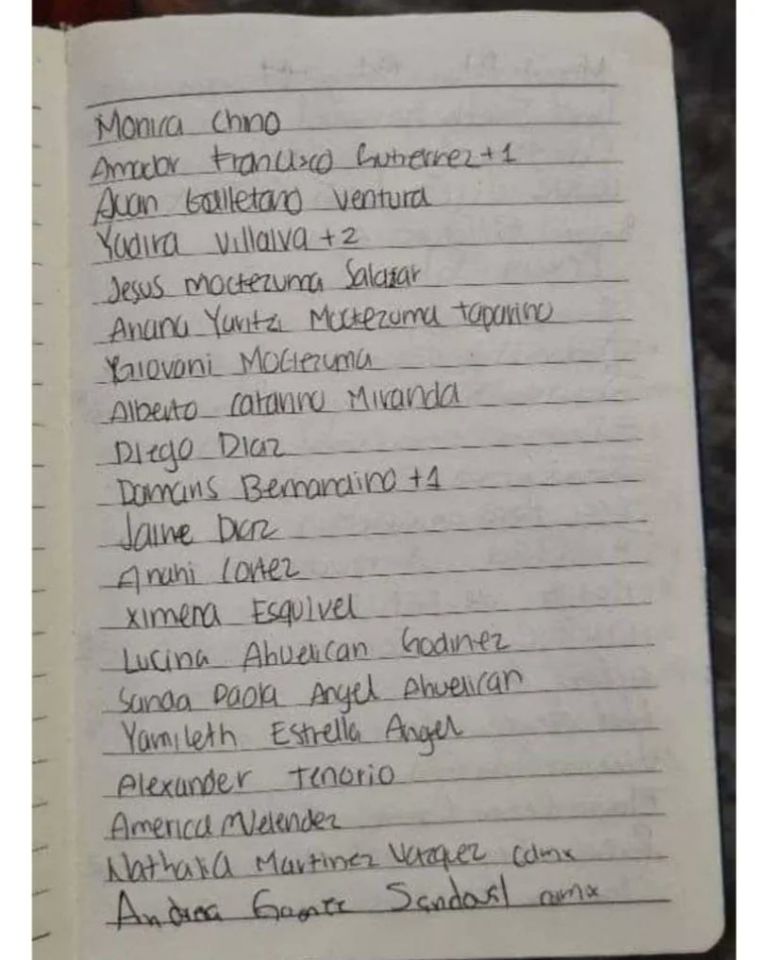 Monica Chino
Amador Francisco Gutierrez +1
Juan Gailletano Ventura
Yadira Villalva +2
Jesus Moctezuma Salazar
Yaritzi Moctezuma
Giovani Moctezuma
Alberto Miranda
Diego Diaz
Bernandino +1
Diaz
Anahi Cortez
Ximena Esquivel
Lucina Ahuelican Godinez
Paola Angel Ahuelican
Yamileth Estrella Angel
Alexander Tenorio
America Melendez
Martinez Vazquez cdmx
Andrea